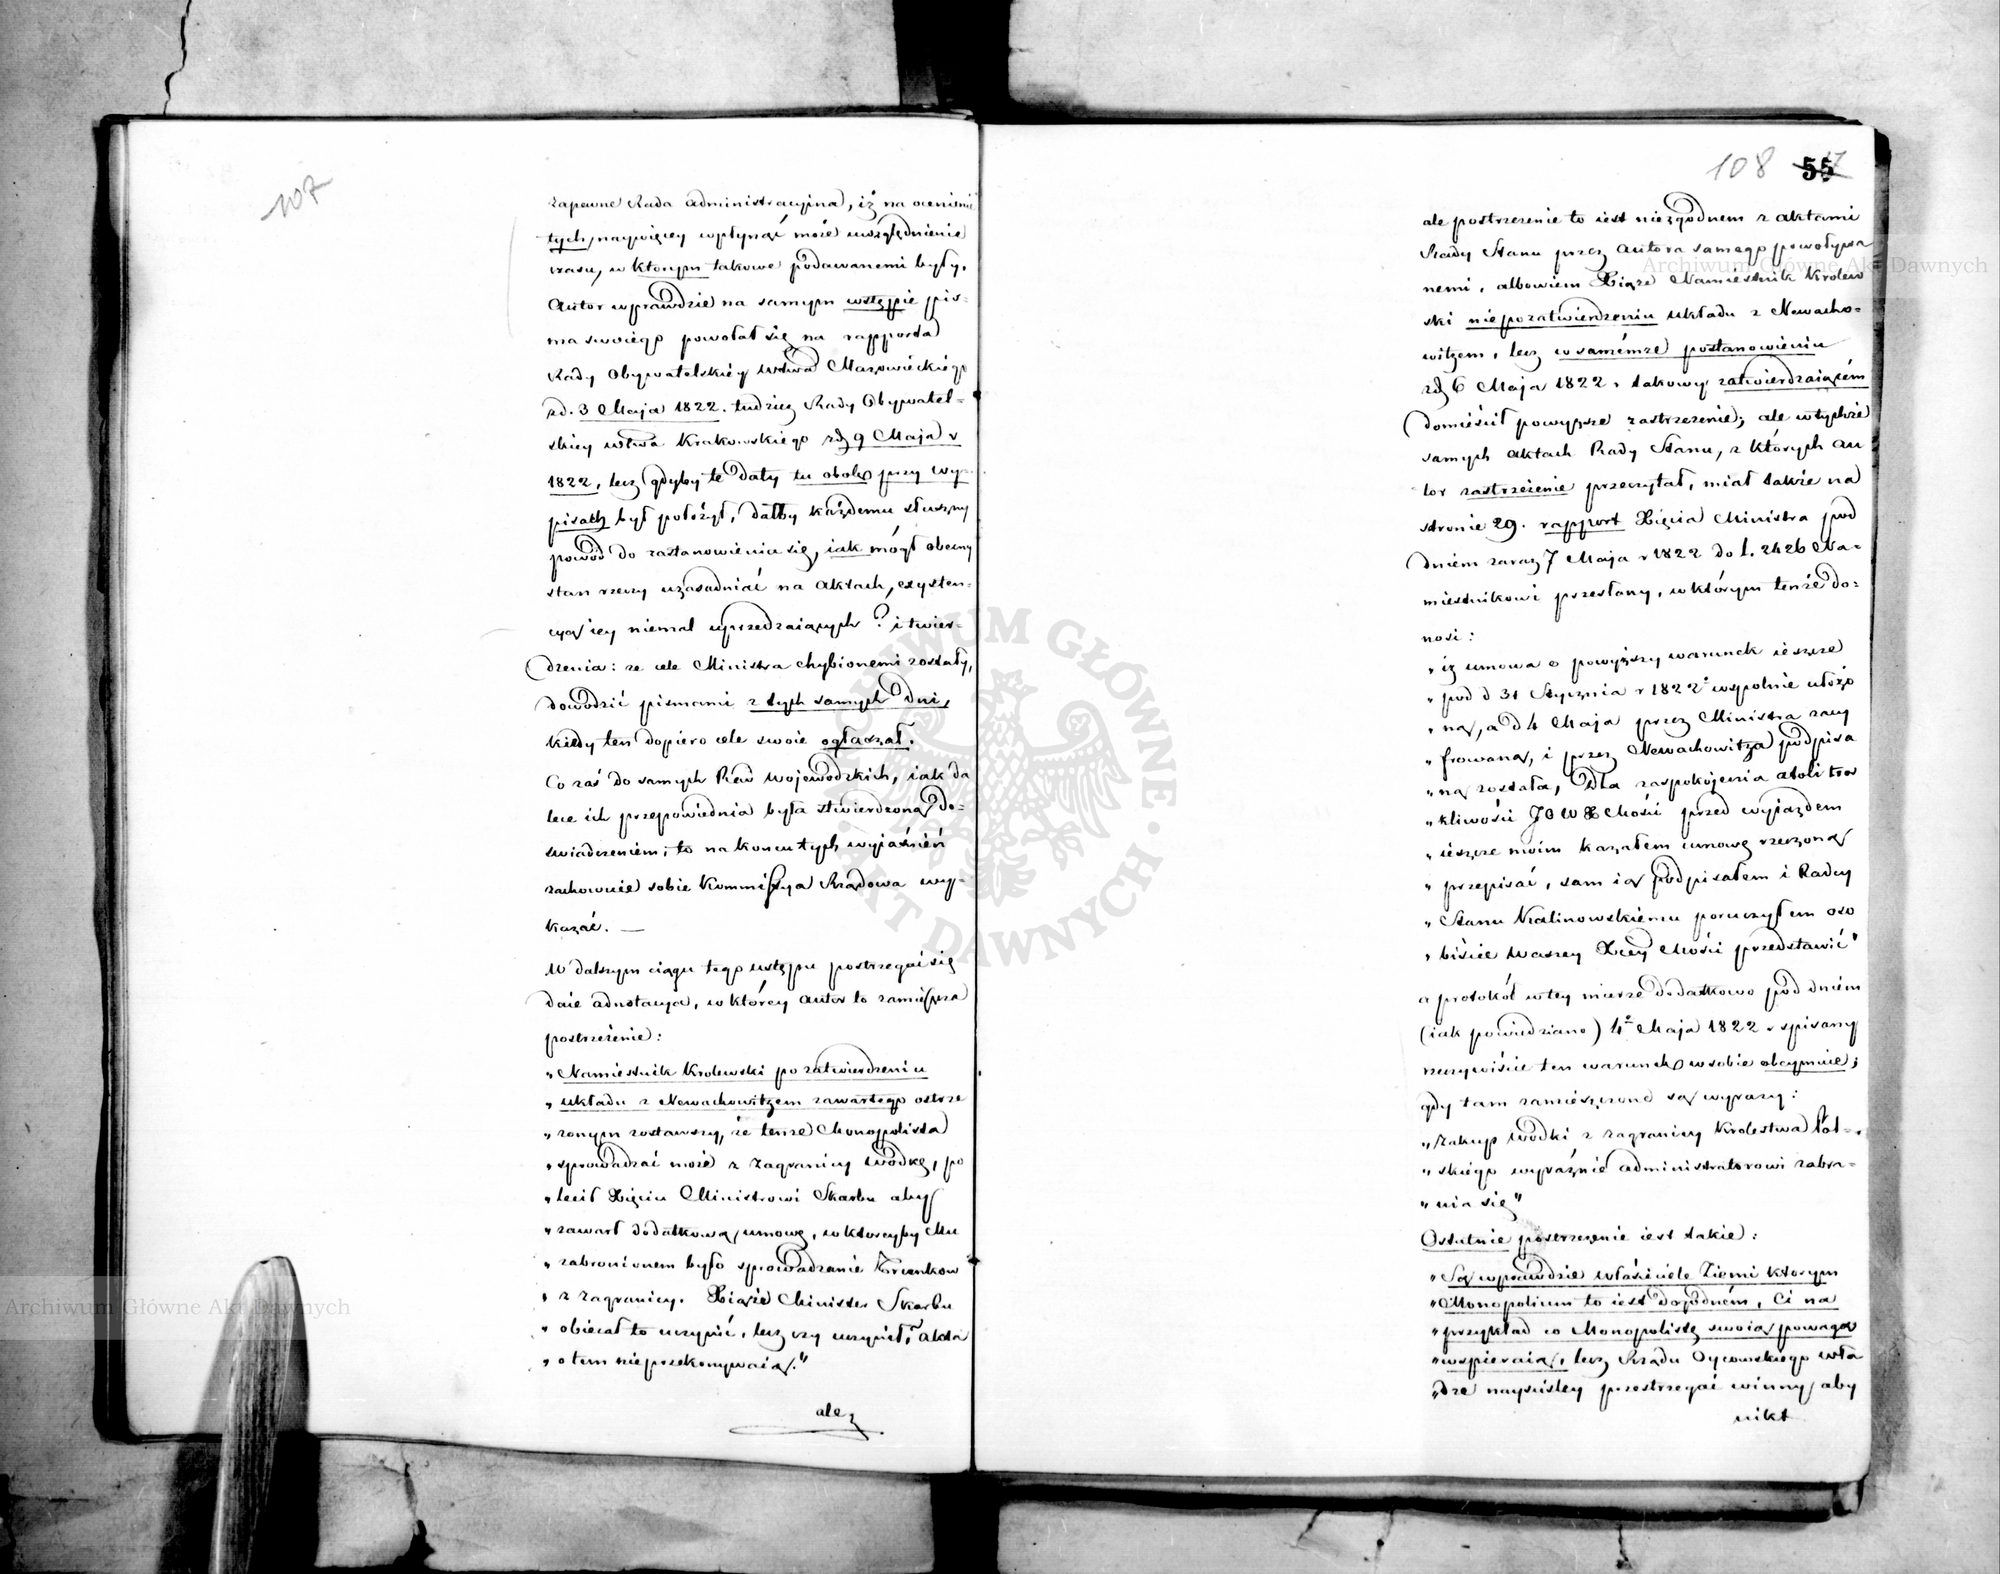 107
zapewne Rada administracyjna, iż na ocenienie
tych, naywięcey wpłynąć może uwzględnienie
czasu, w którym takowe podawanemi były.
Autor wprawdzie na samym wstępie pis-
ma swoiego powołał się na rapporta
Rady Obywatelskiey Wdwa Mazowieckiego
zd. 3 Maja 1822. tudzież Rady Obywatel-
skiey wdwa Krakowskiego zd 9 Maja r
1822, lecz gdyby te daty tu obok przy wy-
pisach był położył, dałby każdemu słuszny
powód do zastanowienia się, iak mógł obecny
stan rzeczy uzasadniać na aktach, exysten-
cyą iey niemal uprzedzaiących? i twier-
dzenia: ze cele Ministra chybionemi zostały,
dowodzić pismami z tych samych dni,
kiedy ten dopiero cele swoie ogłaszał.
Co zaś do samych Rad Wojewodzkich, iak da
lece ich przepowiednia była stwierdzoną do-
swiadczeniem, to na koncu tych wyiaśnień
zachowuie sobie Kommissya Rządowa wy-
kazać. —
W dalszym ciągu tego ustępu postrzegać się
daie adnotacya, w którey autor to zamieszcza
postrzeżenie:
„Namiestnik Krolewski po zatwierdzeniu
„układu z Newachowitzem zawartego ostrze
„żonym zostawszy, że tenże Monopolista
„sprowadzać może z zagranicy wódkę, po
„lecił Xięciu Ministrowi Skarbu aby
„zawarł dodatkową umowę, w któreyby Mu
„zabronionem było sprowadzanie Trunkow
„z zagranicy. Xiąże Minister Skarbu
„obiecał to uczynić, lecz czy uczynił, akta
„o tem nieprzekonywaią."
ale
108 55
ale postrzeżenie to iest niezgodnem z aktami
Rady Stanu przez autora samego powoływa
nemi, albowiem Xiąże Namiestnik Krolew
ski niepozatwierdzeniu układu z Newacho-
witzem, lecz w samémże postanowieniu
zd 6 Maja 1822 r takowy zatwierdzaiącém
domieścił powyższe zastrzeżenie; ale w tychże
samych aktach Rady Stanu, z których au
tor zastrzeżenie przeczytał, miał także na
stronie 29. rapport Xięcia Ministra pod
dniem zaraz 7 Maja r 1822 do l. 2426 Na-
miestnikowi przesłany, w którym tenże do-
nosi:
„iż umowa o powyższy warunek ieszcze
„pod d 31 Stycznia r 1822 wspolnie ułożo
„ną, a d 4 Maja przez Ministra zaay
„frowaną, i przez Newachowitza podpisa
„ną została, Dla zaspokojenia atoli tros
„kliwości JO W X Mości przed wyjazdem
„ieszcze moim kazałem umowę rzeczoną
„przepisać, sam ią podpisałem i Radcy
„Stanu Kalinowskiemu poruczyłem oso
„biście Waszey Xcey Mości przedstawić"
a protokół w tey mierze dodatkowo pod dniem
(iak powiedziano) 4º Maja 1822 r spisany
rzeczywiście ten warunek w sobie obeymuie;
gdy tam zamieszczone są wyrazy:
„Zakup wódki z zagranicy Krolestwa Pol-
„skiego wyraźnie administratorowi zabra-
„nia się"
Ostatnie postrzeżenie iest takie:
„Są wprawdzie właściciele Ziemi ktorym
„Monopolium to iest dogodném, Ci na
„przykład co Monopolistę swoią powagą
„wspieraią, lecz Rządu Oycowskiego wła
„dze nayściśley przestrzegać winny aby
nikt
ARCHIWUM GŁÓWNE AKT DAWNYCH
Archiwum Główne Akt Dawnych
Archiwum Główne Akt Dawnych